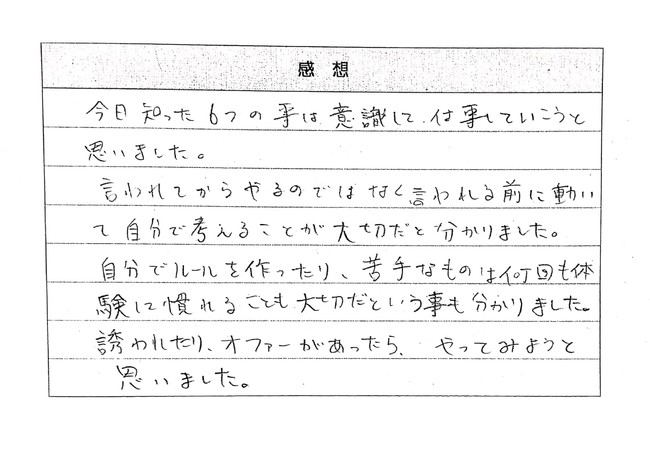 感想
今日知った6つの事は意識して仕事していこうと
思いました。
言われてからやるのではなく言われる前に動い
て自分で考えることが大切だと分かりました。
自分でルールを作ったり、苦手なものは何回も体
験して慣れることも大切だという事も分かりました。
誘われたり、オファーがあったら、やってみようと
思いました。